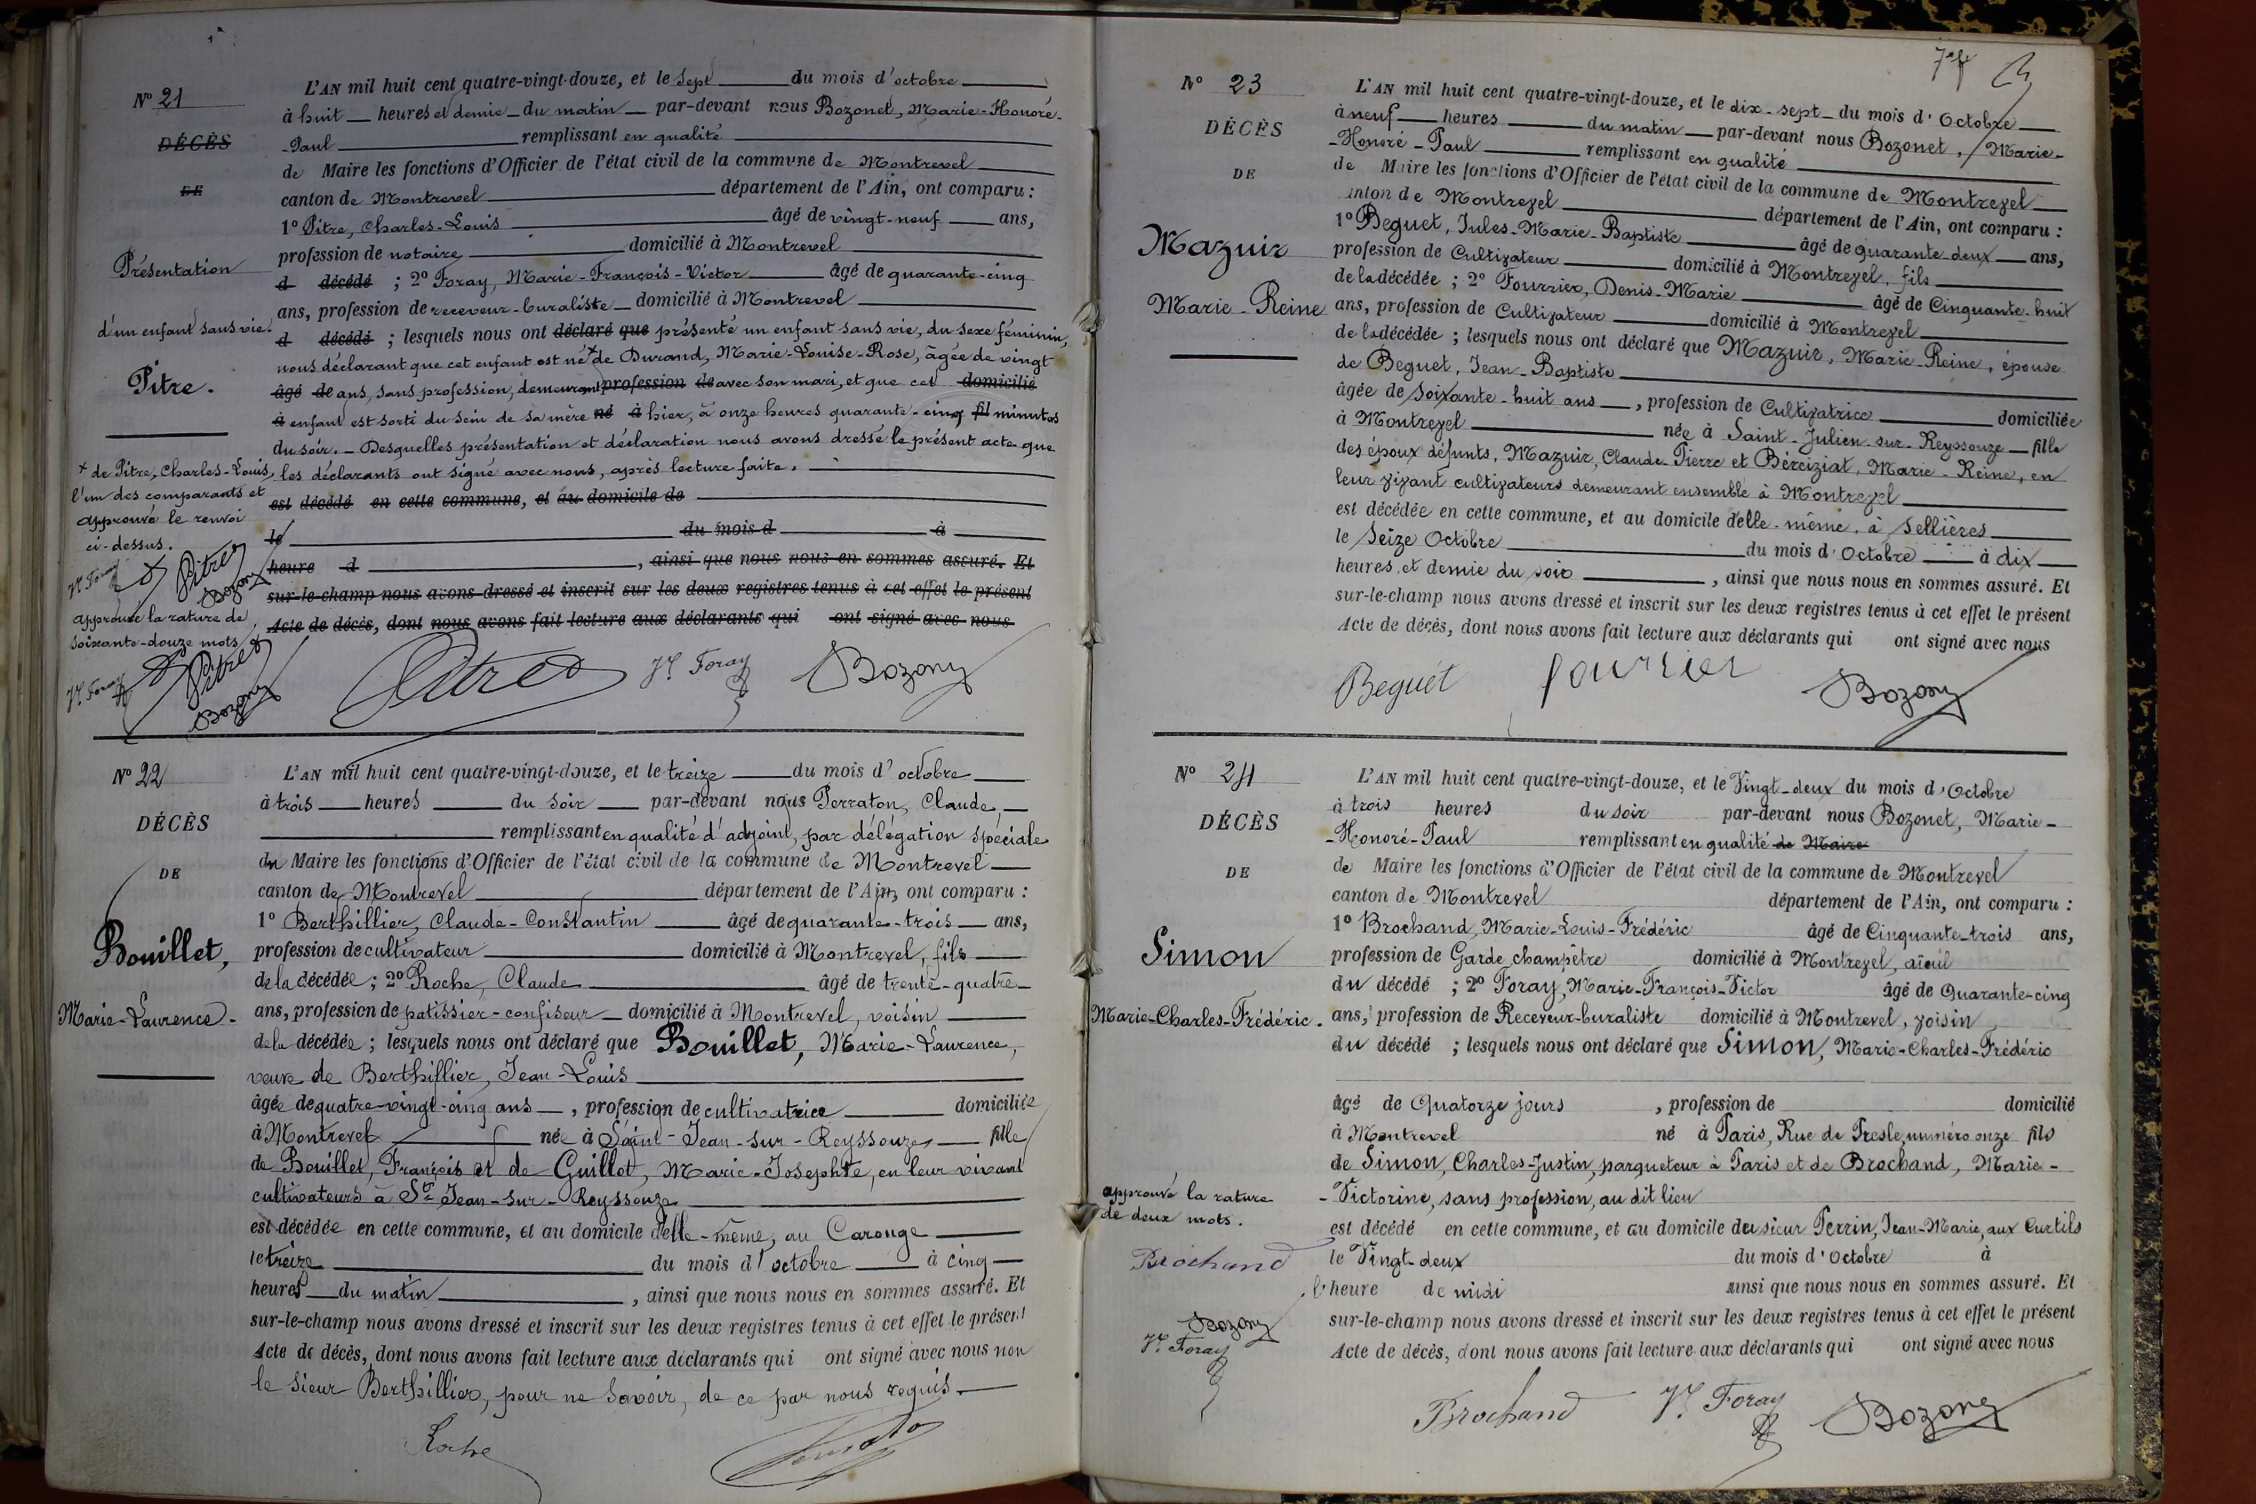 N° 21
DÉCÈS
DE
Présentation
d'un enfant sans vie.
Pitre.
L'AN mil huit cent quatre-vingt-douze, et le sept du mois d'octobre
à huit heures et demie du matin par-devant nous Bozonet, Marie-Honoré-
-Paul remplissant en qualité
de Maire les fonctions d'Officier de l'état civil de la commune de Montrevel
canton de Montrevel département de l'Ain, ont comparu :
1° Pitre, Charles-Louis âgé de vingt-neuf ans,
profession de notaire domicilié à Montrevel
d décédé ; 2° Foray, Marie-François-Victor âgé de quarante-cinq
ans, profession de receveur-buraliste domicilié à Montrevel
d décédé ; lesquels nous ont déclaré que présenté un enfant sans vie, du sexe féminin,
nous déclarant que cet enfant est né + de Durand, Marie-Louise-Rose, âgée de vingt
âgé de ans, sans profession, demeurant profession de avec son mari, et que cet domicilié
à enfant est sorti du sein de sa mère né à hier, à onze heures quarante-cinq fil minutes
du soir. — Desquelles présentation et déclaration nous avons dressé le présent acte que
les déclarants ont signé avec nous, après lecture faite.
est décédé en cette commune, et au domicile de
le du mois d à
heure d , ainsi que nous nous en sommes assuré. Et
sur-le-champ nous avons dressé et inscrit sur les deux registres tenus à cet effet le présent
Acte de décès, dont nous avons fait lecture aux déclarants qui ont signé avec nous
+ de Pitre, Charles-Louis,
l'un des comparants et
approuvé le renvoi
ci-dessus.
Vr Foray Pitre Bozonet
approuvé la rature de
soixante-douze mots
Vr Foray Pitre Bozonet
Pitre Vr Foray Bozonet
N° 22
DÉCÈS
DE
Bouillet,
Marie-Laurence-
L'AN mil huit cent quatre-vingt-douze, et le treize du mois d'octobre
à trois heures du soir par-devant nous Perraton, Claude,
remplissant en qualité d'adjoint, par délégation spéciale
du Maire les fonctions d'Officier de l'état civil de la commune de Montrevel
canton de Montrevel département de l'Ain, ont comparu :
1° Berthillier, Claude-Constantin âgé de quarante-trois ans,
profession de cultivateur domicilié à Montrevel, fils
de la décédée ; 2° Roche, Claude âgé de trente-quatre
ans, profession de patissier-confiseur domicilié à Montrevel, voisin
de la décédée ; lesquels nous ont déclaré que Bouillet, Marie-Laurence,
veuve de Berthillier, Jean-Louis
âgée de quatre-vingt-cinq ans , profession de cultivatrice domiciliée
à Montrevel née à Saint-Jean-sur-Reyssouze fille
de Bouillet, François et de Guillot, Marie-Josephte, en leur vivant
cultivateurs à St Jean-sur-Reyssouze
est décédée en cette commune, et au domicile d'elle-même, au Carouge
le treize du mois d'octobre à cinq
heures du matin , ainsi que nous nous en sommes assuré. Et
sur-le-champ nous avons dressé et inscrit sur les deux registres tenus à cet effet le présent
Acte de décès, dont nous avons fait lecture aux déclarants qui ont signé avec nous non
le sieur Berthillier, pour ne savoir, de ce par nous requis.
Roche Perraton
N° 23
DÉCÈS
DE
Mazuir
Marie-Reine
L'AN mil huit cent quatre-vingt-douze, et le dix-sept du mois d'Octobre
à neuf heures du matin par-devant nous Bozonet, Marie-
-Honoré-Paul remplissant en qualité
de Maire les fonctions d'Officier de l'état civil de la commune de Montrevel
canton de Montrevel département de l'Ain, ont comparu :
1° Beguet, Jules-Marie-Baptiste âgé de quarante-deux ans,
profession de Cultivateur domicilié à Montrevel, fils
de la décédée ; 2° Fourrier, Denis-Marie âgé de Cinquante-huit
ans, profession de Cultivateur domicilié à Montrevel
de la décédée ; lesquels nous ont déclaré que Mazuir, Marie-Reine, épouse
de Beguet, Jean-Baptiste
âgée de soixante-huit ans , profession de Cultivatrice domiciliée
à Montrevel née à Saint-Julien-sur-Reyssouze fille
des époux défunts, Mazuir, Claude-Pierre et Béréziat, Marie-Reine, en
leur vivant cultivateurs demeurant ensemble à Montrevel
est décédée en cette commune, et au domicile d'elle-même, à Sellières
le Seize Octobre du mois d'Octobre à dix
heures et demie du soir , ainsi que nous nous en sommes assuré. Et
sur-le-champ nous avons dressé et inscrit sur les deux registres tenus à cet effet le présent
Acte de décès, dont nous avons fait lecture aux déclarants qui ont signé avec nous
Beguet fourrier Bozonet
N° 24
DÉCÈS
DE
Simon
Marie-Charles-Frédéric.
L'AN mil huit cent quatre-vingt-douze, et le Vingt-deux du mois d'Octobre
à trois heures du soir par-devant nous Bozonet, Marie-
-Honoré-Paul remplissant en qualité de Maire
de Maire les fonctions d'Officier de l'état civil de la commune de Montrevel
canton de Montrevel département de l'Ain, ont comparu :
1° Brochand, Marie-Louis-Frédéric âgé de Cinquante-trois ans,
profession de Garde champêtre domicilié à Montrevel, aïeul
du décédé ; 2° Foray, Marie-François-Victor âgé de Quarante-cinq
ans, profession de Receveur-buraliste domicilié à Montrevel, voisin
du décédé ; lesquels nous ont déclaré que Simon, Marie-Charles-Frédéric
âgé de Quatorze jours , profession de domicilié
à Montrevel né à Paris, Rue de Presle, numéro onze fils
de Simon, Charles-Justin, parqueteur à Paris et de Brochand, Marie-
-Victorine, sans profession, au dit lieu
est décédé en cette commune, et au domicile du sieur Perrin, Jean-Marie, aux Curtils
le Vingt-deux du mois d'Octobre à
l'heure de midi ainsi que nous nous en sommes assuré. Et
sur-le-champ nous avons dressé et inscrit sur les deux registres tenus à cet effet le présent
Acte de décès, dont nous avons fait lecture aux déclarants qui ont signé avec nous
approuvé la rature
de deux mots.
Brochand
Bozonet
Vr Foray
Brochand Vr Foray Bozonet